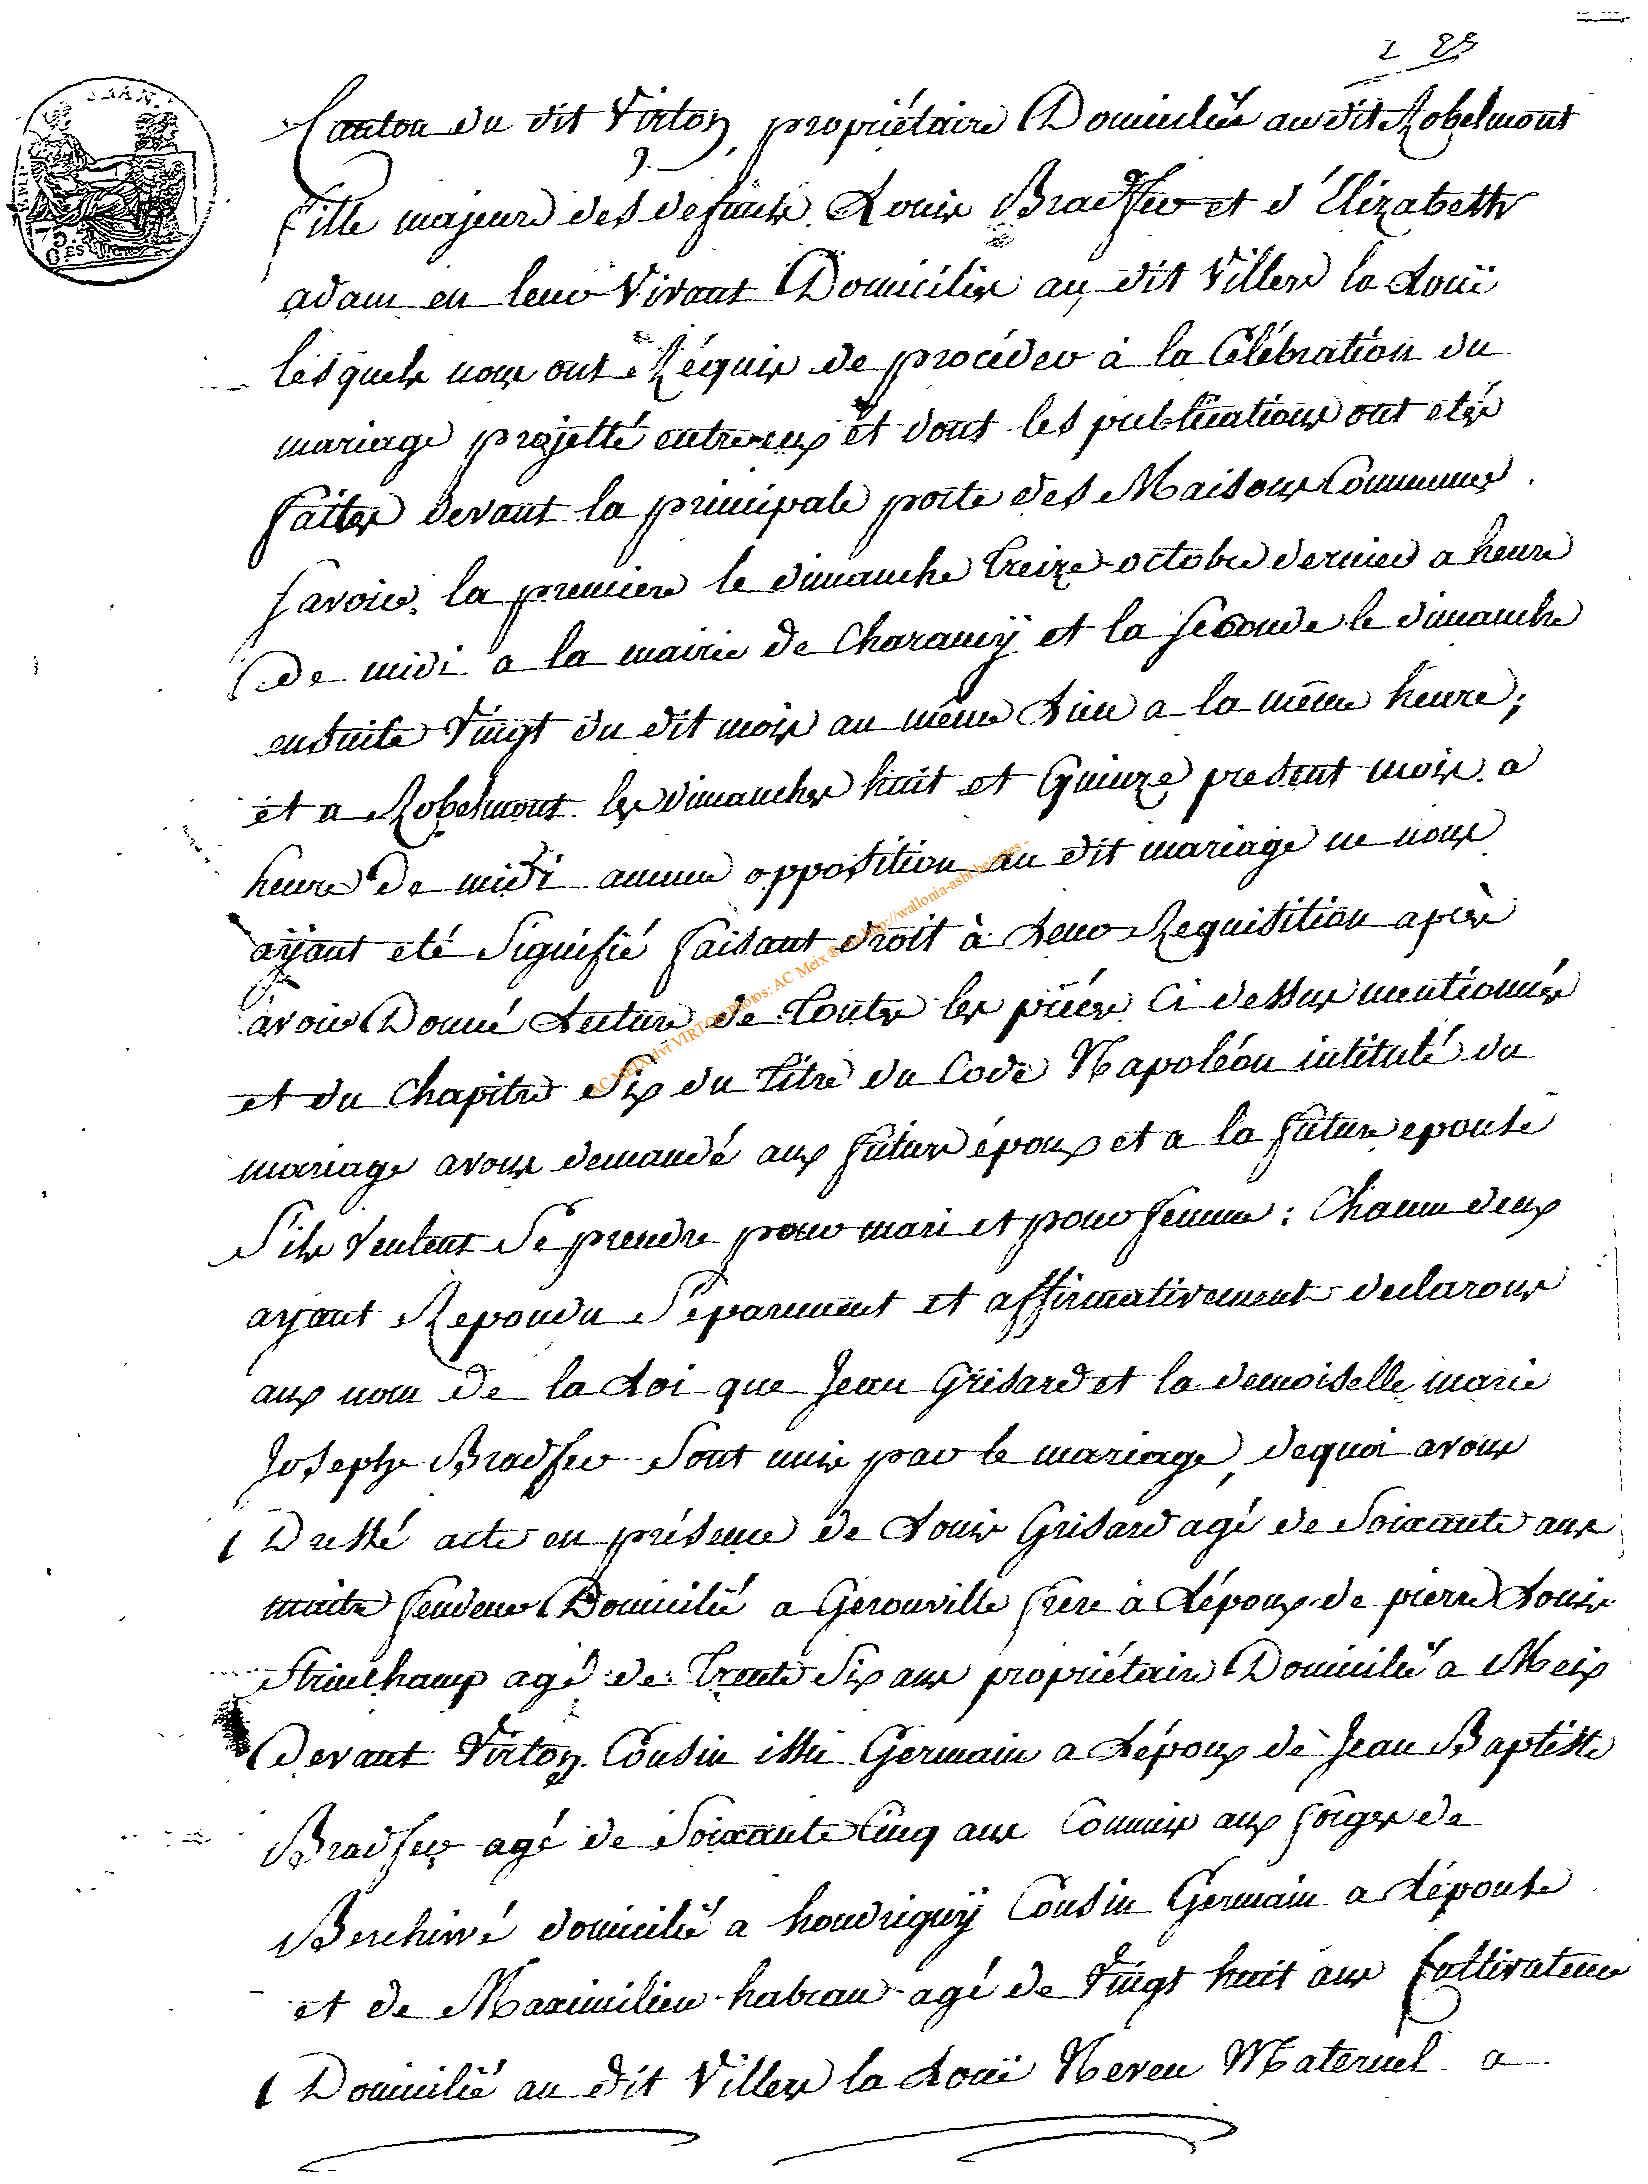 Canton du dit Virton, propriétaire Domiciliée au dit Robelmont
fille majeure des defunts Louis Bradfer et d'Elizabeth
adam en leur Vivant Domiciliés au dit Villers la Loüe
lesquels nous ont Réquis de procéder à la Célébration du
mariage projetté entre eux et dont les publications ont etés
faites devant la principale porte des Maisons Communes
savoir, la premiere le dimanche treize octobre dernier a heure
De midi a la mairie de Charancÿ et la seconde le dimanche
ensuite Vingt du dit mois au même Lieu a la même heure;
et a Robelmont les dimanches huit et Quinze present mois a
heure de midi aucune opposition au dit mariage ne nous
aÿant eté Signifié faisant droit à Leur Requisition après
avoir Donné Lecture de toutes les piéces Ci dessus mentionnées
et du Chapitre Six du titre du Code Napoléon intitulé du
mariage avons demandé aux futur époux et a la future epouse
S'ils Veulent Se prendre pour mari et pour femme: Chacun deux
ayant Repondu Separement et affirmativement declarons
aux nom de la Loi que Jean Grisard et la demoiselle marie
Josephe Bradfer Sont unis par le mariage, dequoi avons
Dressé acte en présence de Louis Grisard agé de Soixante ans
maitre fendeur Domicilié a Gerouville frere à Lépoux de pierre Louis
Strinchamp agé de trente Six ans propriétaire Domicilié a Meix
Devant Virton Cousin issu Germain a Lépoux de Jean Baptiste
Bradfer agé de Soixante Cinq ans Commis aux forges de
Berchiwé domicilié a houdrignÿ Cousin Germain a Lépouse
et de Maximilien habran agé de Vingt huit ans Cultivateur
Domicilié au dit Villers la Loüe Neveu Maternel a